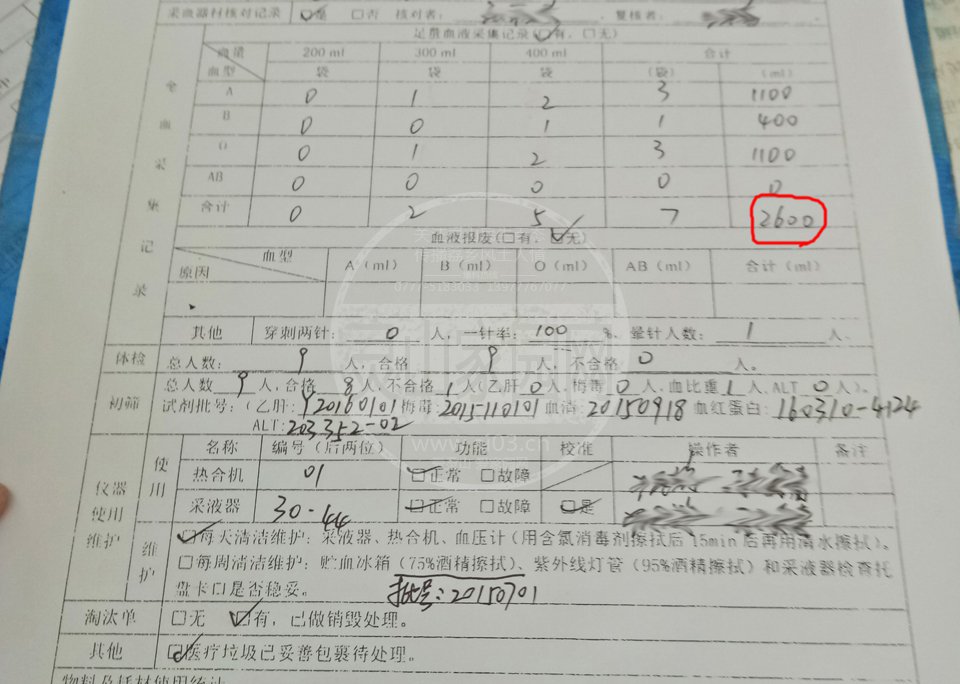 采血器材核对记录 ☑是 □否 核对者： 复核者：
足量血液采集记录(☑有，□无)
血量 200 ml 300 ml 400 ml 合计
血型 袋 袋 袋 (袋) (ml)
A 0 1 2 3 1100
B 0 0 1 1 400
O 0 1 2 3 1100
AB 0 0 0 0 0
合计 0 2 5 7 2600
全血采集记录
血液报废(□有，☑无)
血型 A（ml） B（ml） O（ml） AB（ml） 合计（ml）
原因
其他 穿刺两针： 0 人，一针率：100 %，晕针人数： 1 人。
体检 总人数： 9 人，合格 9 人，不合格 0 人。
初筛 总人数 9 人，合格 8 人，不合格 1 人(乙肝 0 人，梅毒 0 人，血比重 1 人，ALT 0 人)。
试剂批号：(乙肝：Y20160101 梅毒：2015110101 血清：20150918 血红蛋白：160310-4124
ALT：203352-02
名称 编号（后两位） 功能 校准 操作者 备注
仪器使用维护
使用
热合机 01 ☑正常 □故障
采液器 30-44 ☑正常 □故障 ☑是
维护
☑每天清洁维护：采液器、热合机、血压计（用含氯消毒剂擦拭后15min后再用清水擦拭）。
□每周清洁维护：贮血冰箱（75%酒精擦拭）、紫外线灯管（95%酒精擦拭）和采液器检查托
盘卡口是否稳妥。 批号：20150701
淘汰单 □无 ☑有，已做销毁处理。
其他 ☑医疗垃圾已妥善包裹待处理。
物料及耗材使用统计